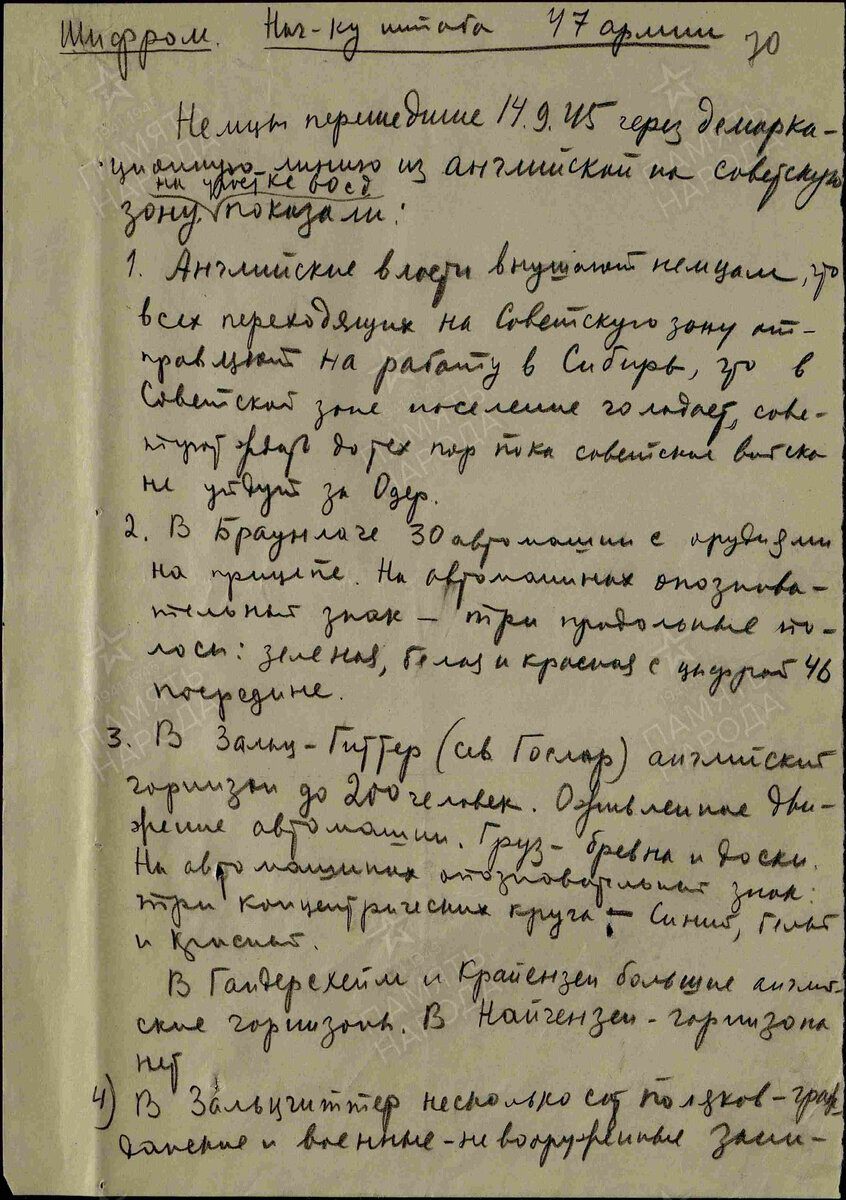 Шифром. Нач-ку штаба 47 армии 70
Немцы перешедшие 14.9.45 через демарка-
ционную линию из английской на советскую
на участке
зону показали:
1. Английские власти внушают немцам, что
всех переходящих на Советскую зону от-
правляют на работу в Сибирь, что в
Советской зоне население голодает, сове-
туют ждать до тех пор пока советские войска
не уйдут за Одер.
2. В Браунлаге 30 автомашин с орудиями
на прицепе. На автомашинах опознова-
тельный знак – три продольные по-
лосы: зеленая, белая и красная с цифрой 46
посредине.
3. В Зальц-Гиттер (сев Гослар) английский
гарнизон до 200 человек. Оживленное дви-
жение автомашин. Груз – бревна и доски.
На автомашинах опозновательный знак:
три концентрических круга – Синий, белый
и красный.
В Гандерсхейм и Крайензен большие англий-
ские гарнизоны. В – гарнизона
нет
4) В Зальцгиттер несколько сот поляков – граж-
данские и военные – невооруженные
ПАМЯТЬ НАРОДА